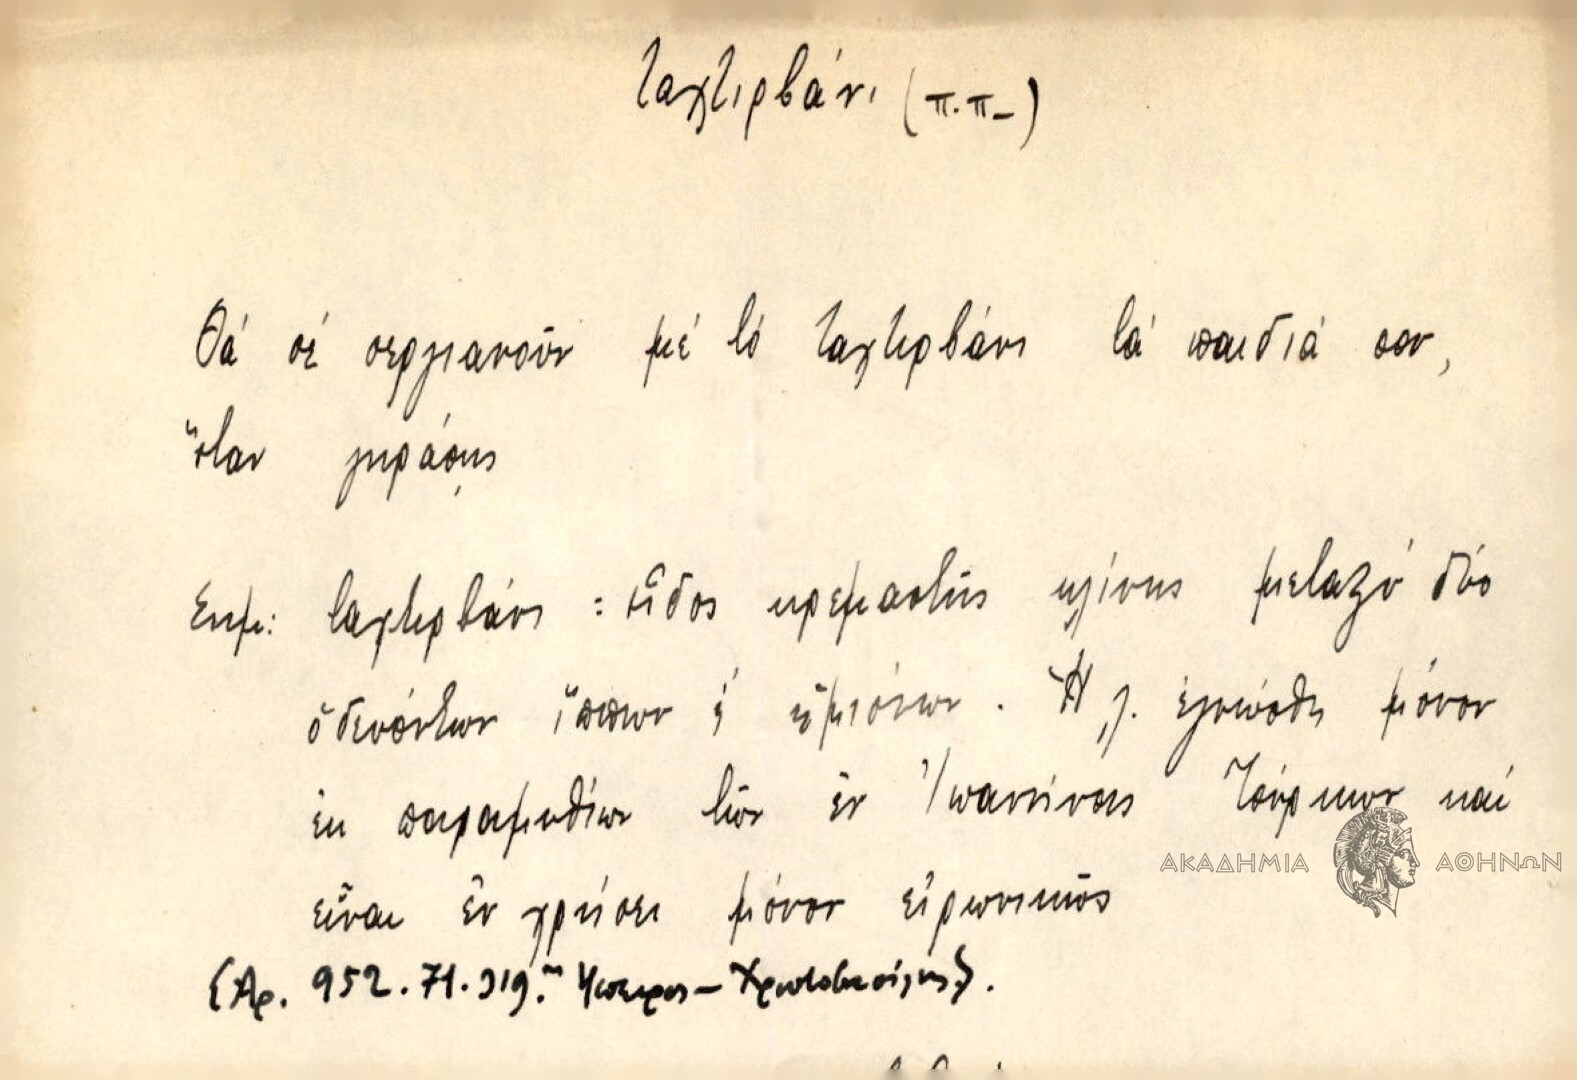 ταχτιρβάνι (π.π-)
Θά σέ σεργιανοῦν μέ τό ταχτιρβάνι τά παιδιά σου,
ὅταν γηράσῃς
Σημ: ταχτιρβάνι : εἶδος κρεμαστῆς κλίνης μεταξύ δύο
ὁδευόντων ἵππων ἤ ἡμιόνων. Ἡ λ. ἐγνώσθη μόνον
ἐκ παραμυθίων τῶν ἐν Ἰωαννίνοις Τούρκων καί
εἶναι ἐν χρήσει μόνον εἰρωνικῶς
(Αρ. 952. 71. 319. Ἤπειρος - Χριστοβασίλης).
ΑΚΑΔΗΜΙΑ ΑΘΗΝΩΝ